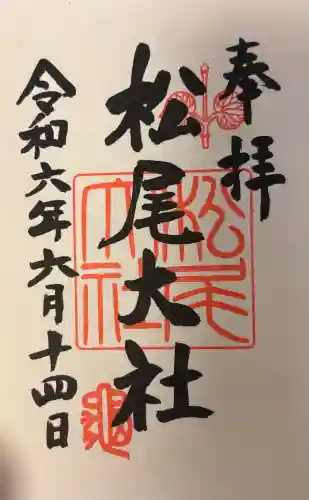 奉拝
松尾大社
松尾大社
令和六年六月十四日